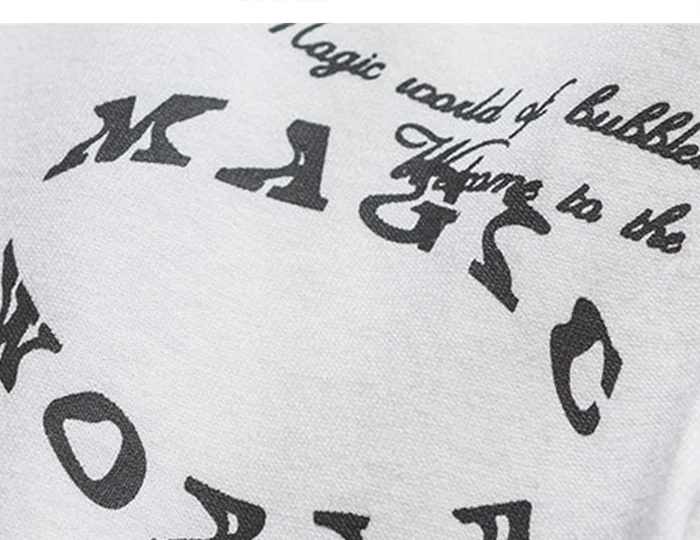 Magic world of bubbles
Welcome to the
MAGIC
WORLD